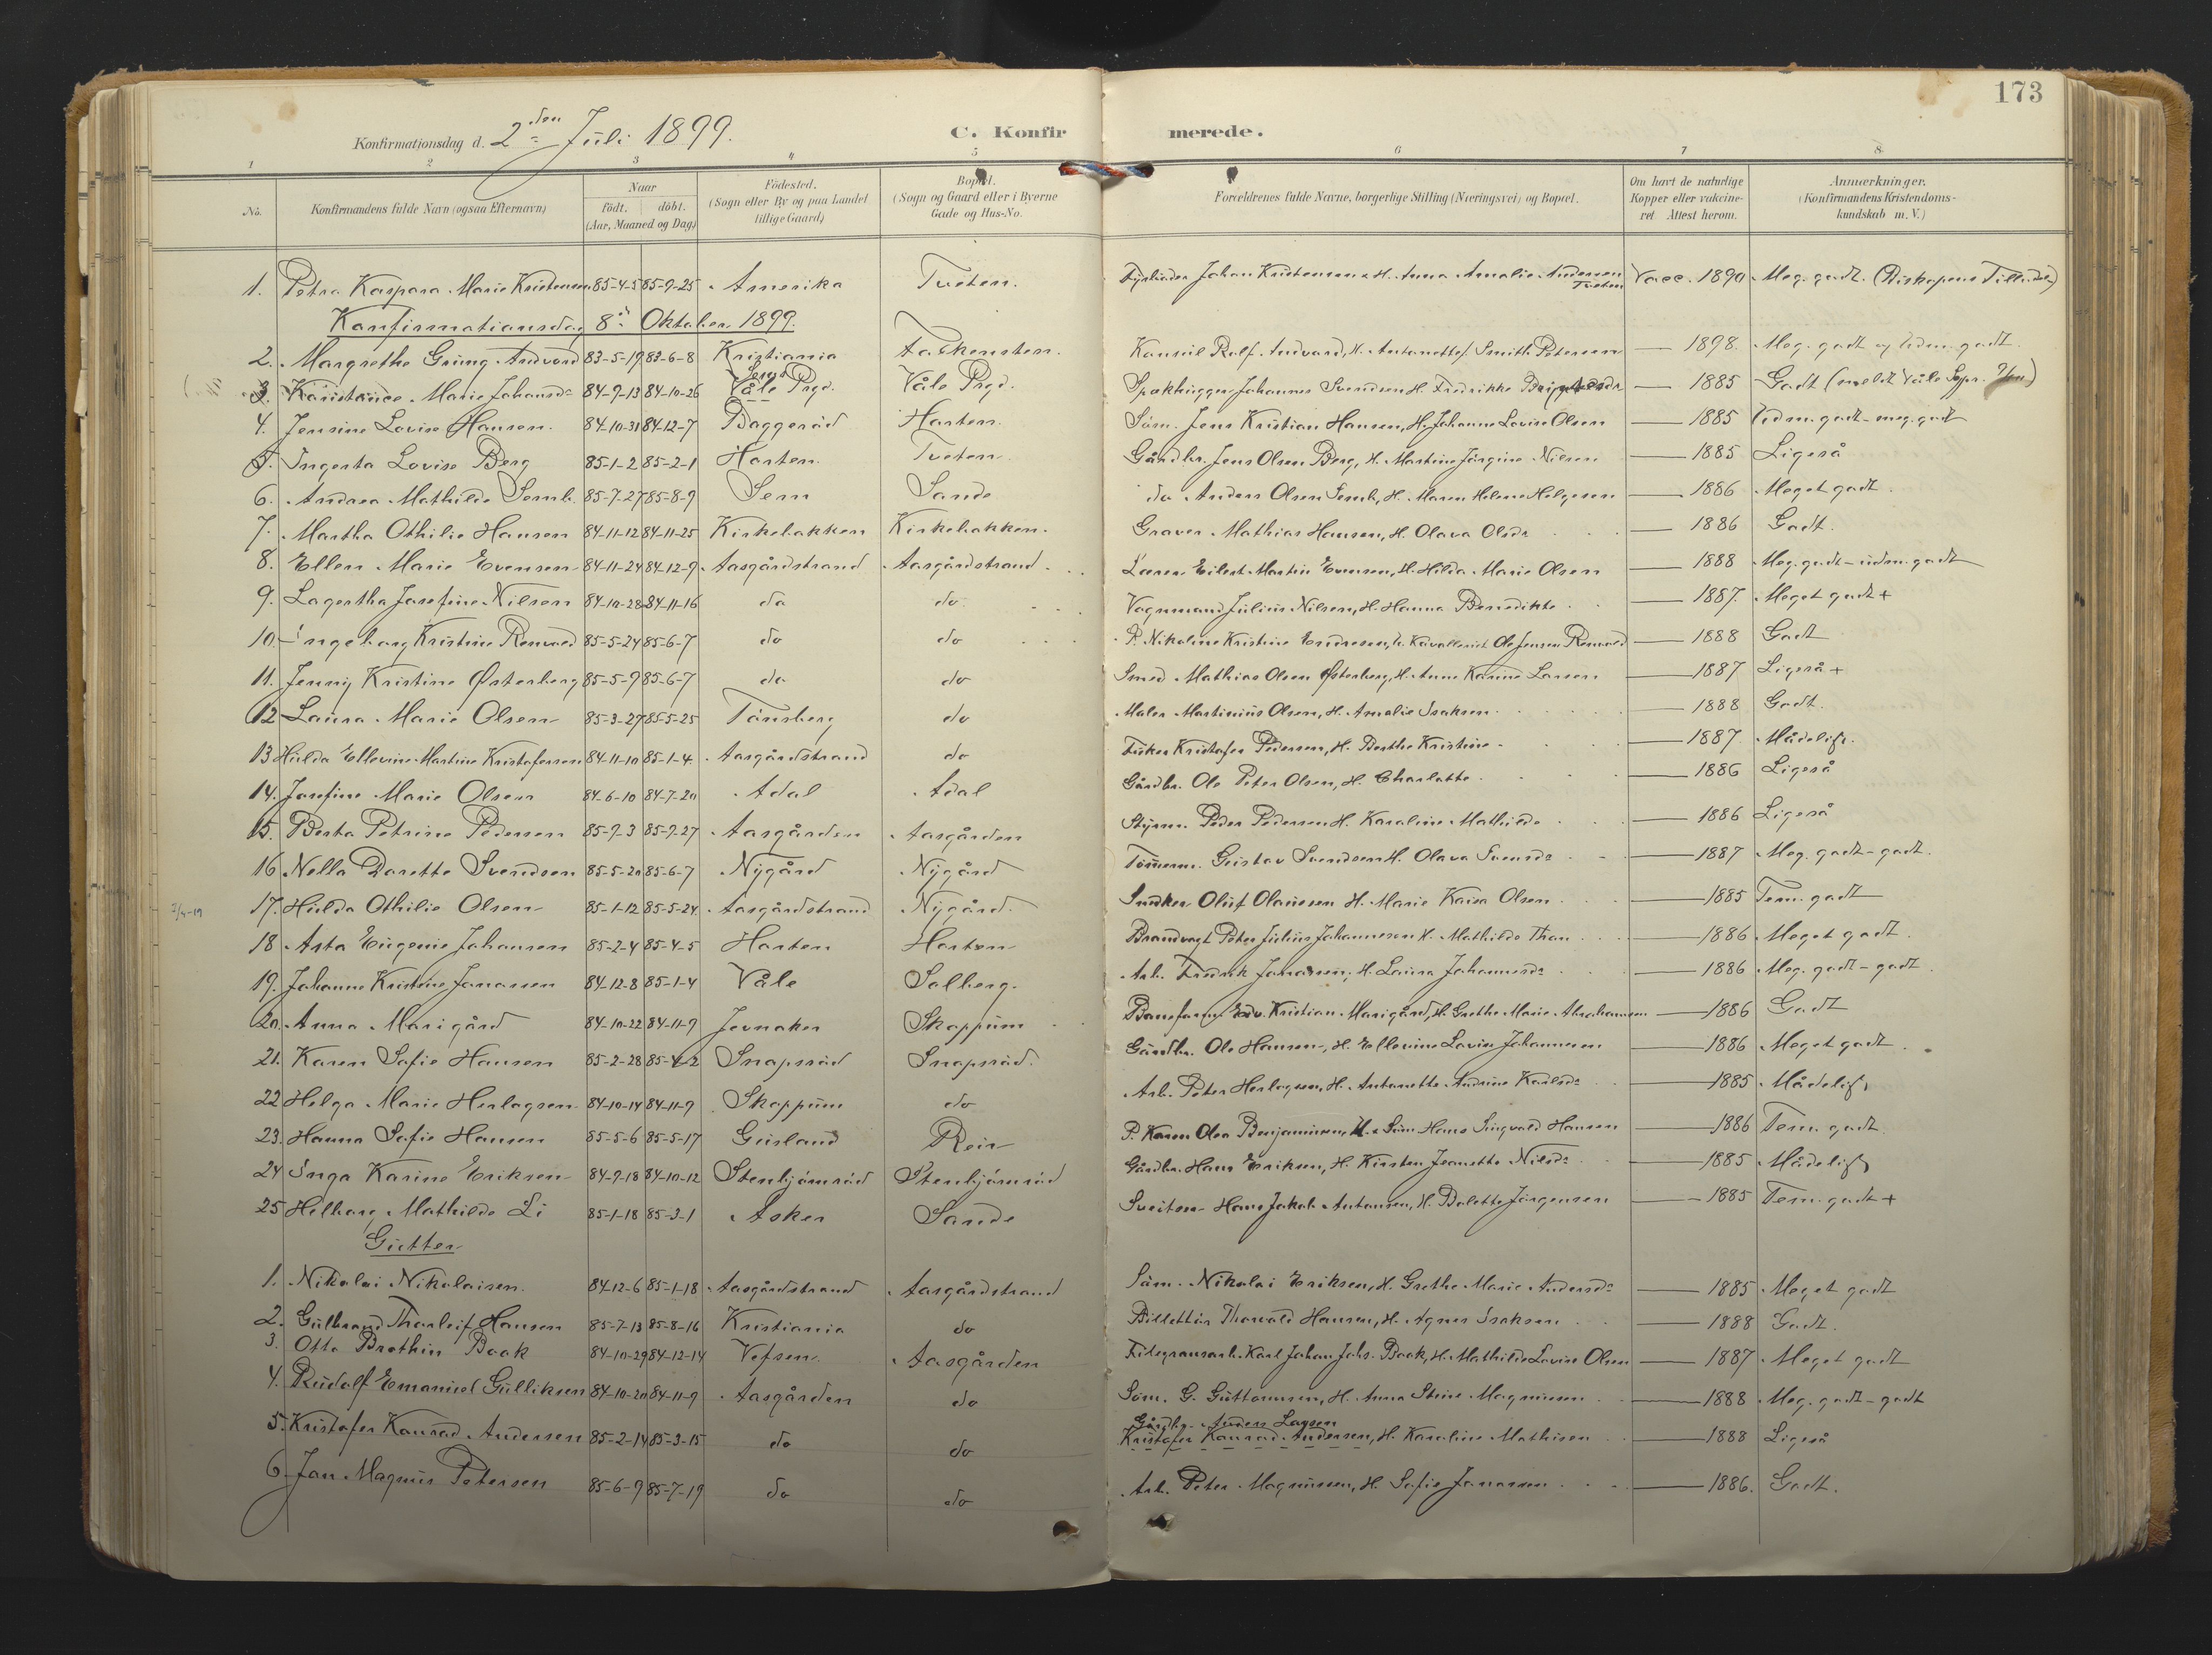 173
Konfirmationsdag d. 2den Juli 1899.
C. Konfirmerede.
1 2 3 4 5 6 7 8
No. Konfirmandens fulde Navn (ogsaa Efternavn) Naar født. døbt. (Aar, Maaned og Dag) Fødested. (Sogn eller By og paa Landet tillige Gaard) Bopæl. (Sogn og Gaard eller i Byerne Gade og Hus-No. Forældrenes fulde Navne, borgerlige Stilling (Næringsvei) og Bopæl. Om havt de naturlige Kopper eller vakcineret Attest herom. Anmærkninger. (Konfirmandens Kristendomskundskab m. V.)
1. Petra Kaspara Marie Kristensen 85-4-5 85-9-25 Amerika Tveten. Johan Kristensen & H. Anna Amalie Andersen Tveten Vacc. 1890 Meg. godt. (Biskopens Tilladelse)
Konfirmationsdag 8de Oktober 1899.
2. Margrethe Grüng Andvord 83-5-19 83-6-8 Kristiania Falkensten. Konsul Rolf Andvord, H. Antonette f. Smith Petersen — 1898. Meg. godt og udm. godt.
3. Konstance Marie Johansdr 84-9-13 84-10-26 Våle Prgd. Våle Prgd. Spækhugger Johannes Svendsen H. Fredrikke — 1885 Godt (meldt Våle Sgpr.
4. Jensine Lovise Hansen. 84-10-31 84-12-7 Baggerød Horten. Søm. Jens Kristian Hansen, H. Johanne Lovise Olsen — 1885 Udm. godt - meg. godt
5. Ingerta Lovise Berg 85-1-2 85-2-1 Horten. Tveten. Gårdbr. Jens Olsen Berg, H. Martine Jørgine Nilsen — 1885 Ligeså
6. Andrea Mathilde Semb. 85-7-27 85-8-9 Sem Sande do Anders Olsen Semb, H. Maren Helene Helgesen — 1886 Meget godt.
7. Martha Othilie Hansen 84-11-12 84-11-25 Kirkebakken Kirkebakken. Graver Mathias Hansen, H. Olava Olsdr — 1886 Godt.
8. Ellen Marie Evensen 84-11-24 84-12-9 Aasgårdstrand Aasgårdstrand. Eilert Martin Evensen, H. Hilda Marie Olsen — 1888 Meg. godt - udm. godt
9. Lagertha Josefine Nilsen 84-10-28 84-11-16 do do. Vognmand Julius Nilsen, H. Hanna Benedikte — 1887. Meget godt +
10. Ingeborg Kristine Renvold 85-5-24 85-6-7 do do P. Nikoline Kristine Endresen, U. Kavallerist Ole Jensen Renvold — 1888 Godt
11. Jenny Kristine Østerberg 85-5-9 85-6-7 do do Smed Mathias Olsen Østerberg, H. Anne Karine Larsen — 1887 Ligeså +
12 Laura Marie Olsen 85-3-27 85-5-25 Tønsberg do Maler Martinius Olsen, H. Amalie Isaksen — 1888 Godt.
13 Hulda Ellevine Martine Kristofersen 84-11-10 85-1-4. Aasgårdstrand do Fisker Kristofer Pedersen, H. Berthe Kristine — 1887. Mådelig.
14. Josefine Marie Olsen 84-6-10 84-7-20 Adal Adal Gårdbr. Ole Peter Olsen, H. Charlotte — 1886 Ligeså
15. Berta Petrine Pedersen 85-9-3 85-9-27 Aasgården Aasgården Styrm. Peder Pedersen H. Karoline Mathilde — 1886 Ligeså
16 Nella Dorette Svendsen 85-5-20 85-6-7 Nygård Nygård Tømerm. Gustav Svendsen H. Olava Svensdr — 1887 Meg. godt - godt.
17. Hulda Othilie Olsen 85-1-12 85-5-24. Aasgårdstrand Nygård. Snedker Oluf Olaussen H. Marie Kaisa Olsen — 1885 Tem. godt
18 Asta Eugenie Johansen 85-2-4 85-4-5 Horten Horten Brandvagt Peter Julius Johannesen H. Mathilde Thon — 1886 Meget godt.
19. Johanne Kristine Jonassen 84-12-8 85-1-4 Våle Solberg. Arb. Fredrik Jonassen, H. Laura Johannesdr — 1886 Meg. godt - godt.
20. Anna Marigård 84-10-22 84-11-9 Jevnaker Skoppum Baneform. Edv. Kristian Marigård, H. Grethe Marie Abrahamsen — 1886 Godt
21. Karen Sofie Hansen 85-2-28 85-4-2 Snapsrød Snapsrød. Gårdbr. Ole Hansen, H. Ellevine Lovise Johannesen — 1886 Meget godt.
22 Helga Marie Herlogsen 84-10-14 84-11-9 Skoppum do Arb. Peter Herlogsen, H. Antonette Andrine Karlsdr — 1885 Mådelig
23. Hanna Sofie Hansen 85-5-6 85-5-17 Guisland Reir P. Karen Olea Benjaminsen, U. Søm. Hans Singvald Hansen — 1886 Tem. godt.
24 Inga Karine Eriksen 84-9-18 84-10-12 Stenbjørnrød Stenbjørnrød Gårdbr. Hans Eriksen, H. Kirsten Jeanette Nilsdr — 1885 Mådelig
25 Helborg Mathilde Li 85-1-18 85-3-1 Asker Sande Sveitser Hans Jakob Antonsen, H. Bolette Jørgensen — 1885 Tem. godt +
Gutter
1. Nikolai Nikolaisen. 84-12-6 85-1-18 Aasgårdstrand Aasgårdstrand Søm. Nikolai Eriksen, H. Grethe Marie Andersdr — 1885 Meget godt
2. Gulbrand Thorleif Hansen 85-7-13 85-8-16 Kristiania do Billettør Thorvald Hansen, H. Agnes Isaksen — 1888 Godt.
3. Otto Brethin Baak 84-10-29 84-12-14 Vefsen. Aasgården Karl Johan Johs. Baak, H. Mathilde Lovise Olsen — 1887 Meget godt
4. Rudolf Emanuel Gulliksen 84-10-20 84-11-9 Aasgården do Søm. G. Guttormsen, H. Anna Stine Magnussen — 1888 Meg. godt - godt
Gårdbr. Anders Larsen
5. Kristofer Konrad Andersen 85-2-14 85-3-15 do do Kristofer Konrad Andersen, H. Karoline Mathisen — 1888 Ligeså
6. Jan Magnus Petersen 85-6-9 85-7-19 do do Arb. Peter Magnussen, H. Sofie Jonassen — 1886. Godt.